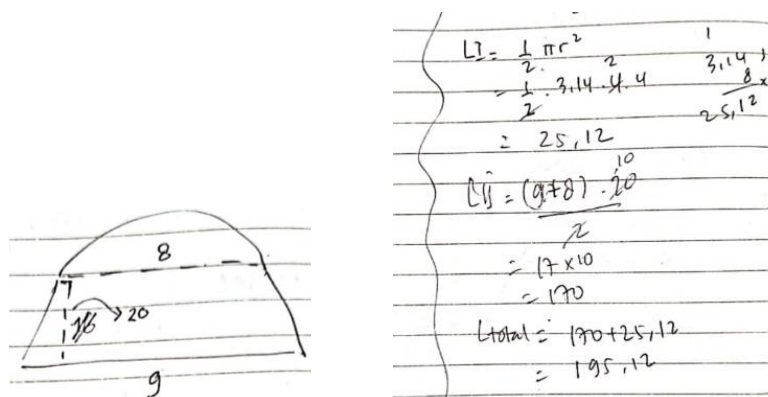 8
20
9
LI = 1/2 πr²
= 1/2 . 3,14 . 4 . 4
2
1
3,14
8 ×
25,12
= 25,12
LII = (9+8) . 20 / 2
10
= 17 × 10
= 170
Ltotal = 170 + 25,12
= 195,12